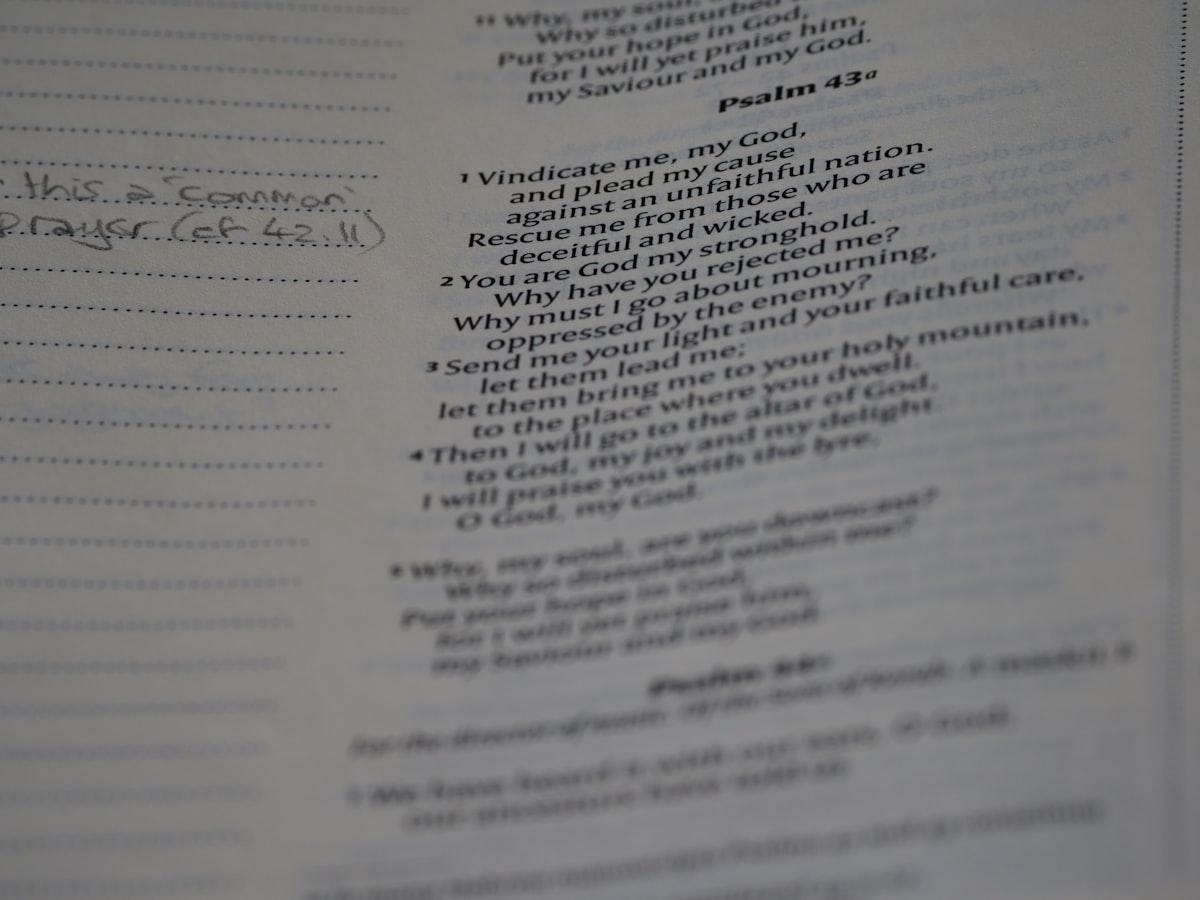 this a "common"
prayer (cf 42.11)
11 Why, my soul,
Why so disturbed
Put your hope in God,
for I will yet praise him,
my Saviour and my God.
Psalm 43a
1 Vindicate me, my God,
and plead my cause
against an unfaithful nation.
Rescue me from those who are
deceitful and wicked.
2 You are God my stronghold.
Why have you rejected me?
Why must I go about mourning,
oppressed by the enemy?
3 Send me your light and your faithful care,
let them lead me;
let them bring me to your holy mountain,
to the place where you dwell.
4 Then I will go to the altar of God,
to God, my joy and my delight.
I will praise you with the lyre,
O God, my God.
5 Why, my soul, are you downcast?
Why so disturbed within me?
Put your hope in God,
for I will yet praise him,
my Saviour and my God.
Psalm
For the director of music. Of the Sons of Korah. A
1 We have heard it with our ears, O God;
our ancestors have told us